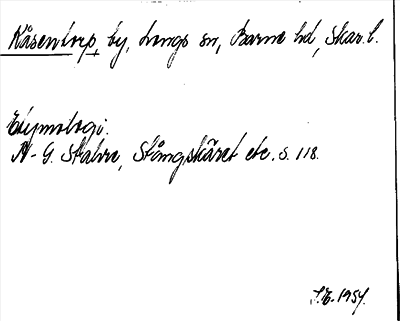 Kåsentorp, by, Längs sn, Barne hd, Skar. l.
Etymologi.
A-G. Stahre, Stångskäret etc. s. 118.
S.E. 1954.